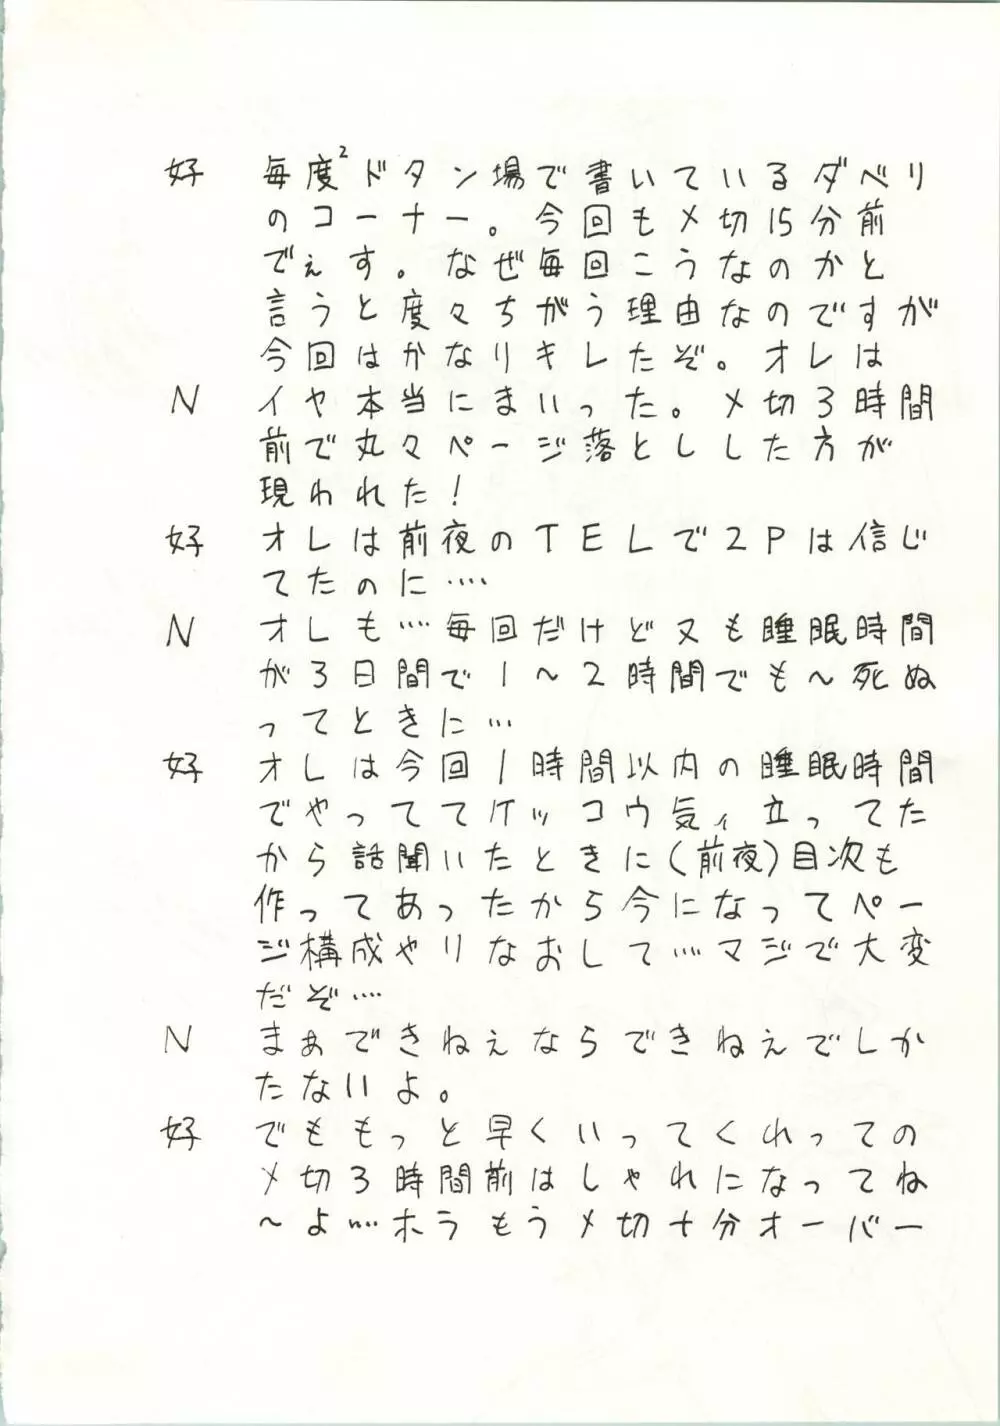 好 毎度²ドタン場で書いているダベリ
のコーナー。今回もメ切15分前
でぇす。なぜ毎回こうなのかと
言うと度々ちがう理由なのですが
今回はかなりキレたぞ。オレは
N イヤ本当にまいった。メ切3時間
前で丸々ページ落とした方が
現われた!
好 オレは前夜のTELで2Pは信じ
てたのに‥‥
N オレも‥‥毎回だけど又も睡眠時間
が3日間で1～2時間でも～死ぬ
ってときに…
好 オレは今回1時間以内の睡眠時間
でやっててケッコウ気ィ立ってた
から話聞いたときに(前夜)目次も
作ってあったから今になってペー
ジ構成やりなおして‥‥マジで大変
だぞ‥‥
N まぁできねぇならできねぇでしか
たないよ。
好 でももっと早くいってくれっての
メ切3時間前はしゃれになってね
～よ‥‥ホラもうメ切十分オーバー